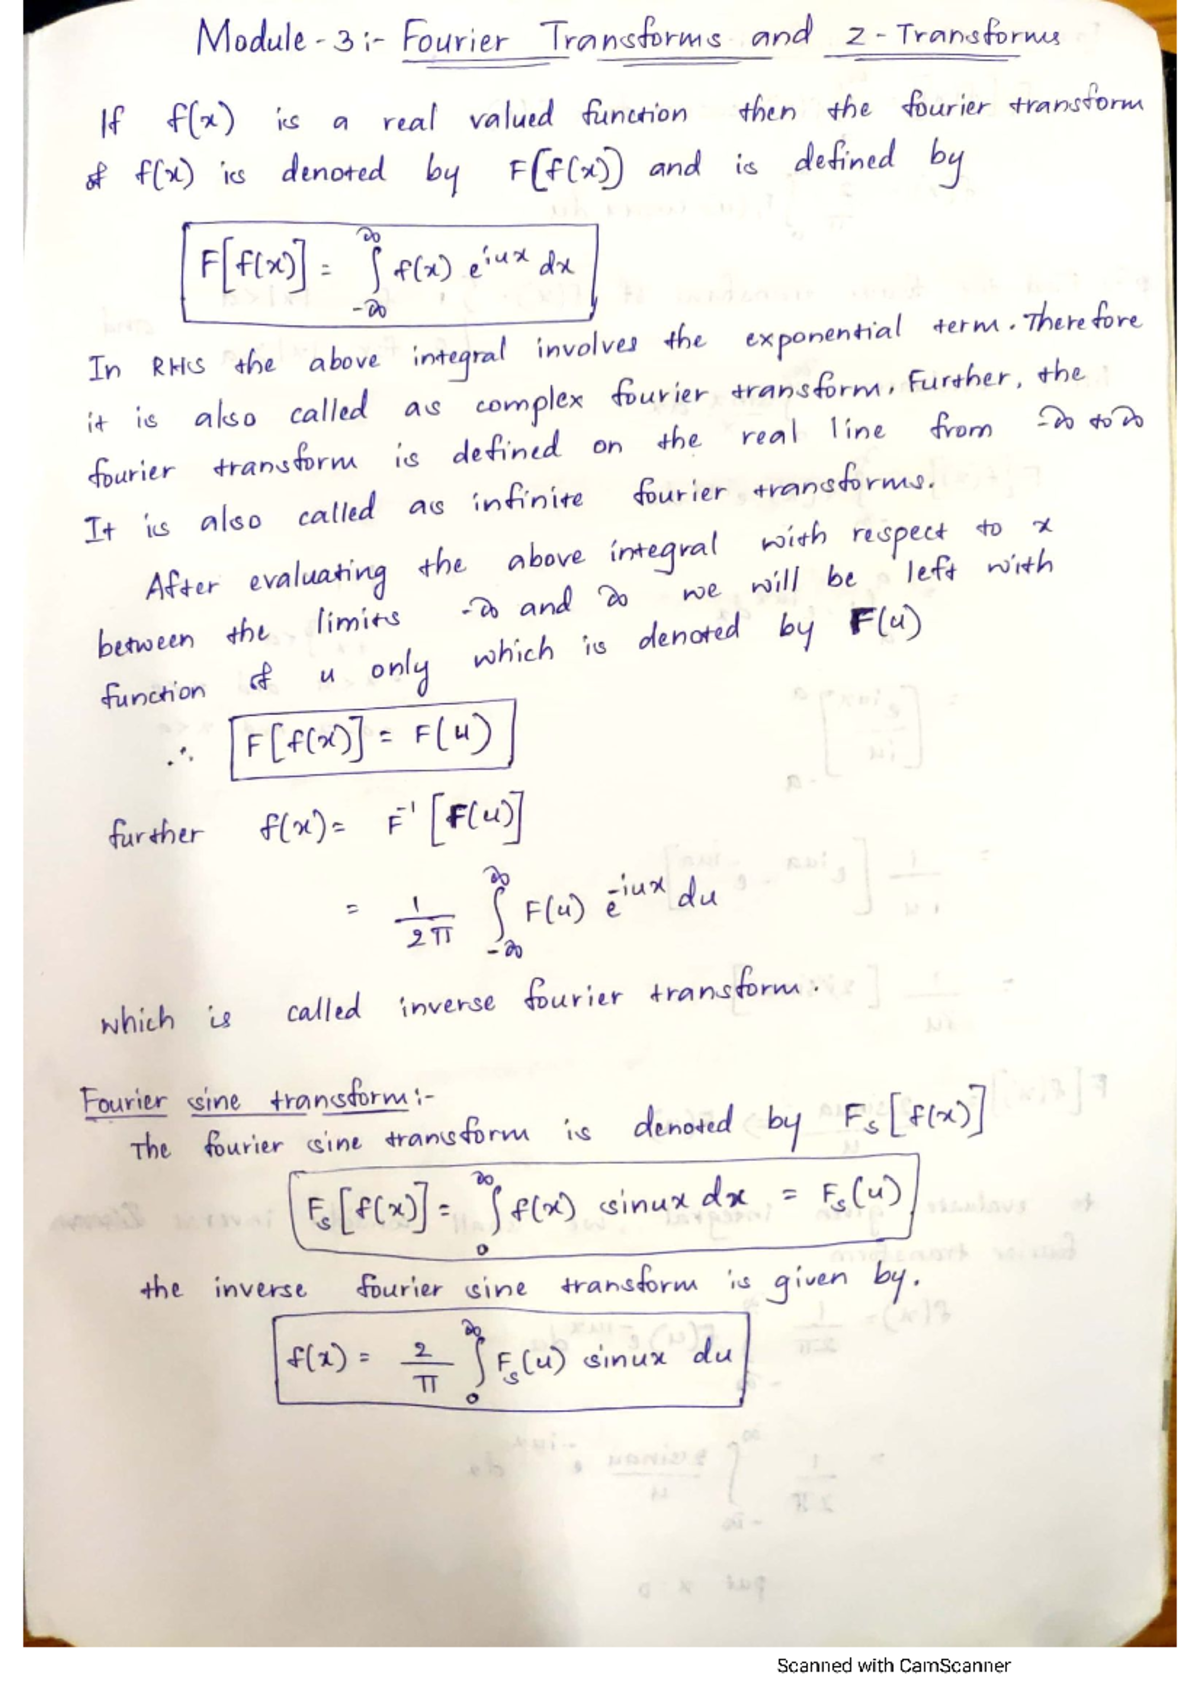 Module - 3 :- Fourier Transforms and Z - Transforms
If f(x) is a real valued function then the fourier transform
of f(x) is denoted by F[f(x)] and is defined by
F[f(x)] = ∫_{-∞}^{∞} f(x) e^{iux} dx
In RHS the above integral involves the exponential term. Therefore
it is also called as complex fourier transform. Further, the
fourier transform is defined on the real line from -∞ to ∞
It is also called as infinite fourier transforms.
After evaluating the above integral with respect to x
between the limits -∞ and ∞ we will be left with
function of u only which is denoted by F(u)
∴ F[f(x)] = F(u)
further f(x) = F^{-1} [F(u)]
= 1/2π ∫_{-∞}^{∞} F(u) e^{-iux} du
which is called inverse fourier transform.
Fourier sine transform :-
The fourier sine transform is denoted by F_s[f(x)]
F_s[f(x)] = ∫_{0}^{∞} f(x) sinux dx = F_s(u)
the inverse fourier sine transform is given by.
f(x) = 2/π ∫_{0}^{∞} F_s(u) sinux du
Scanned with CamScanner